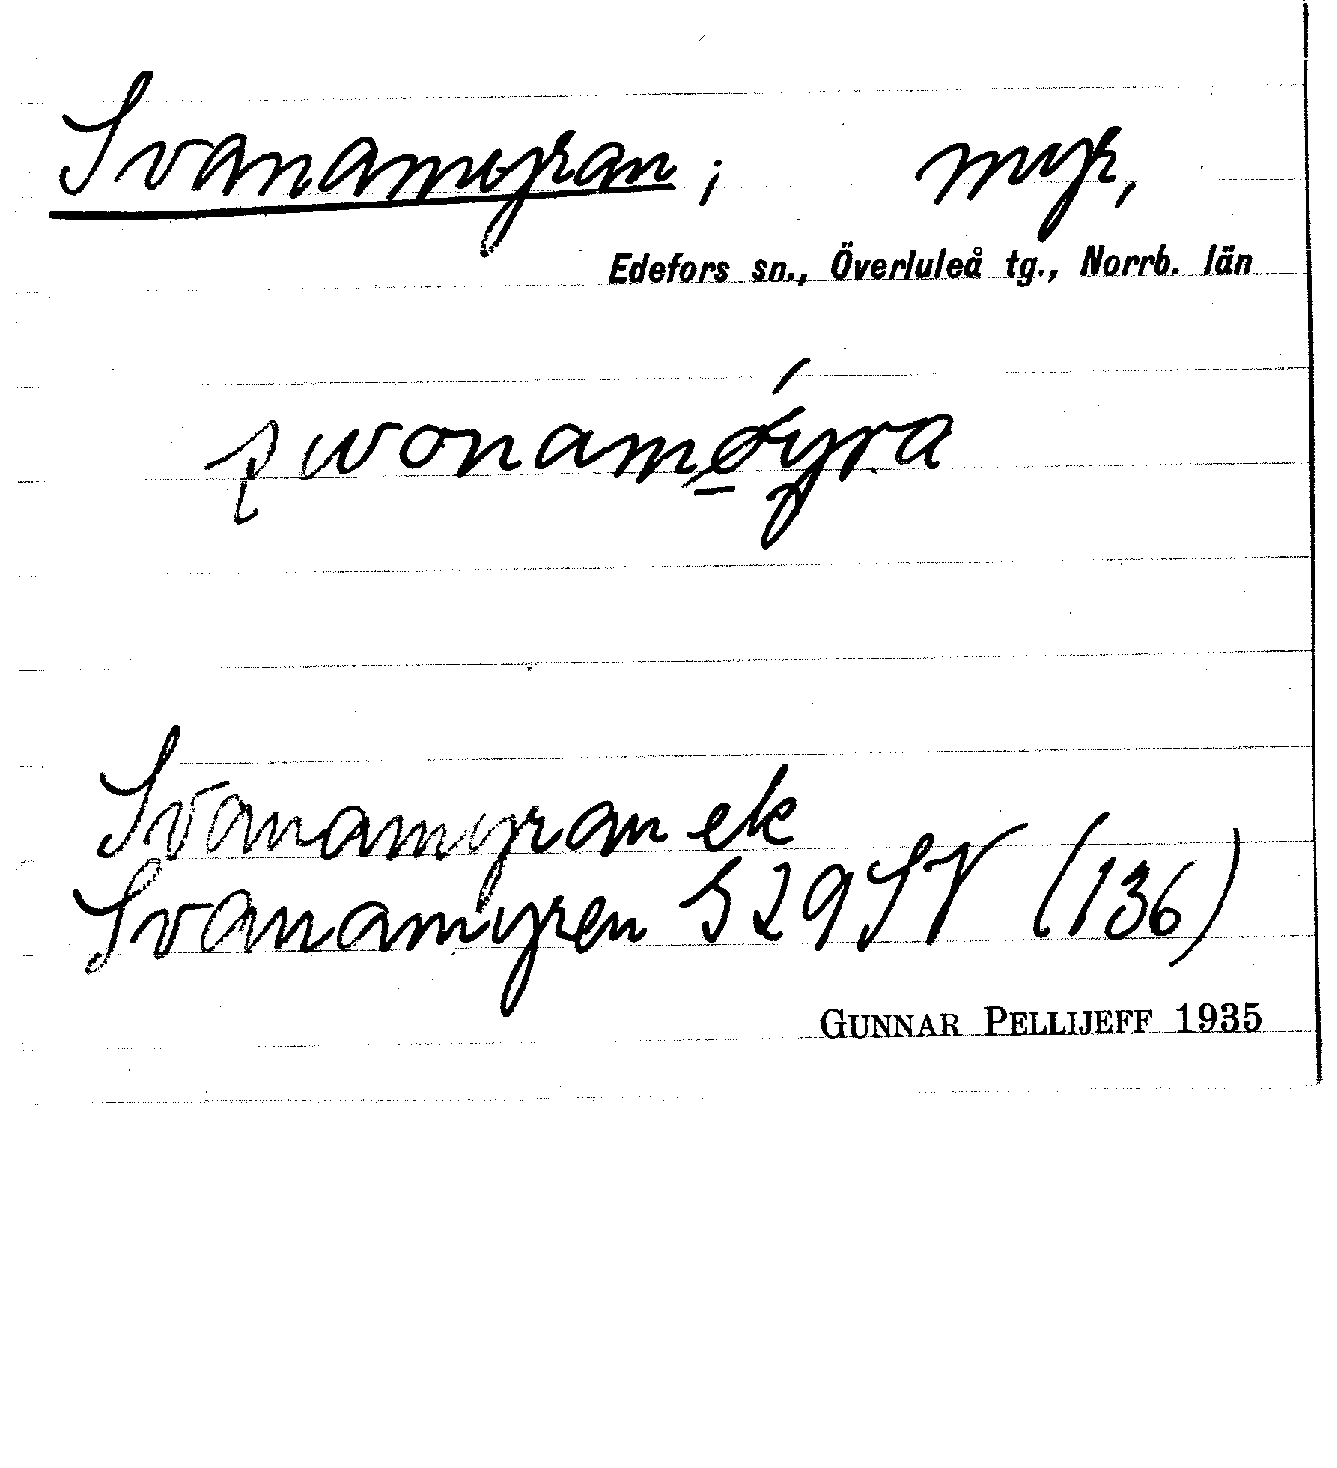 Svanamyran; myr,
Edefors sn., Överluleå tg., Norrb. län
Svanamyran ek
Svanamyren S29SV (136)
GUNNAR PELLIJEFF 1935